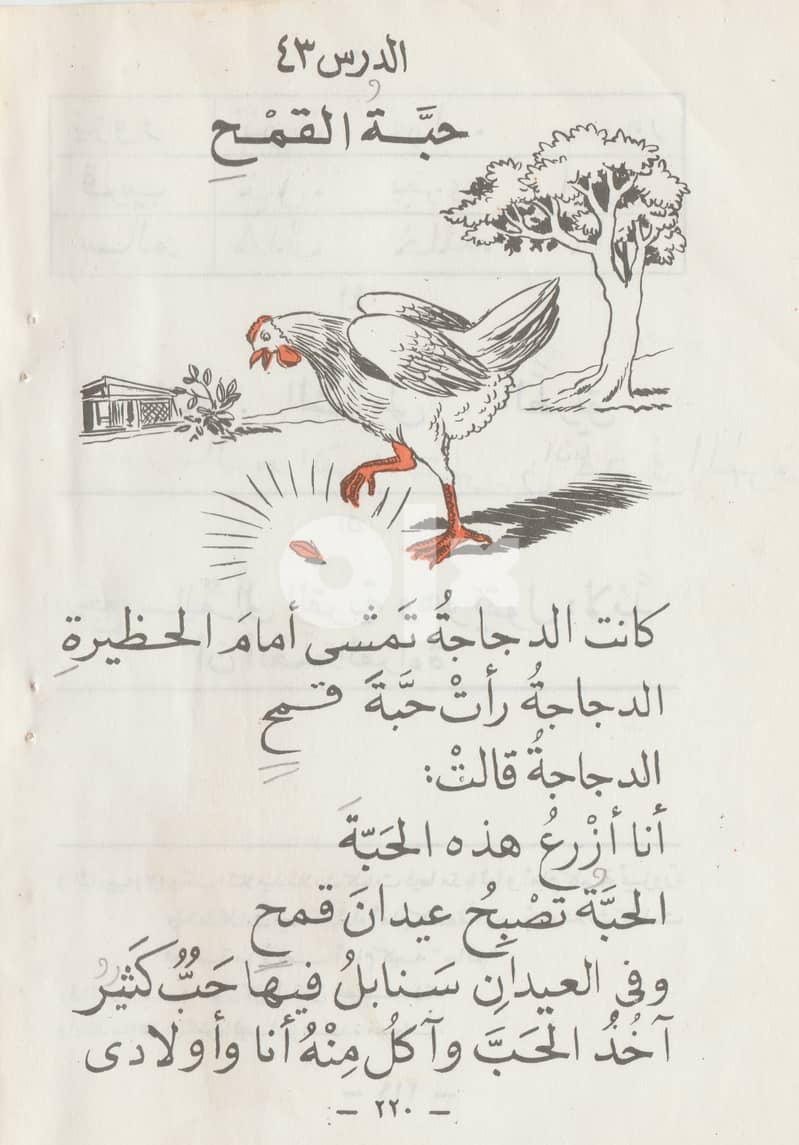 الدرس ٤٣
حبَّةُ القمْحِ
كانت الدجاجةُ تَمشى أمامَ الحظيرةِ
الدجاجةُ رأتْ حبَّةَ قمحٍ
الدجاجةُ قالتْ:
أنا أزْرعُ هذه الحَبّةَ
الحبَّةُ تُصْبِحُ عيدانَ قمحٍ
وفى العيدانِ سَنابلُ فيها حَبٌّ كَثيرٌ
آخُذُ الحَبَّ وآكُلُ مِنْهُ أنا وأولادى
— ٢٢٠ —